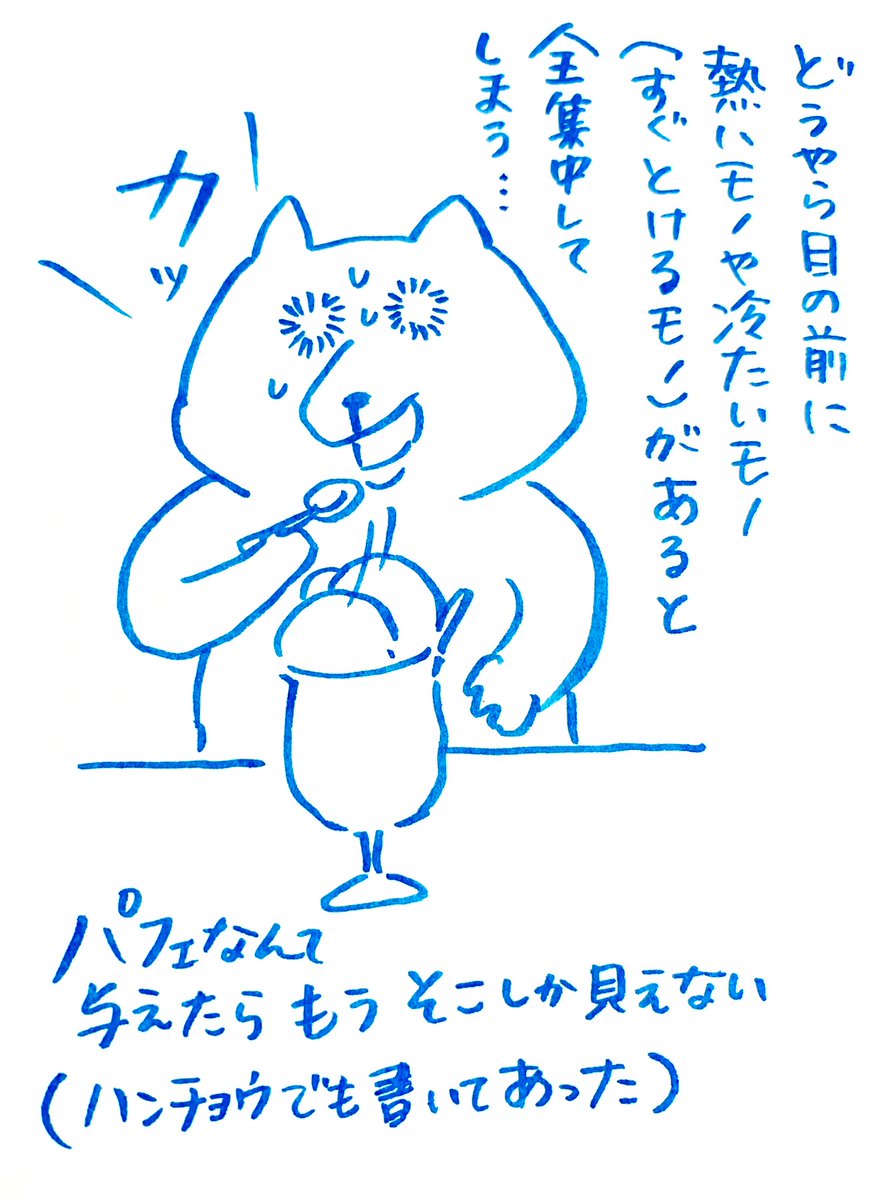 どうやら目の前に
熱いモノや冷たいモノ
(すぐとけるモノ)があると
全集中して
しまう…
カッ
パフェなんて
与えたら もう そこしか見えない
(ハンチョウでも書いてあった)